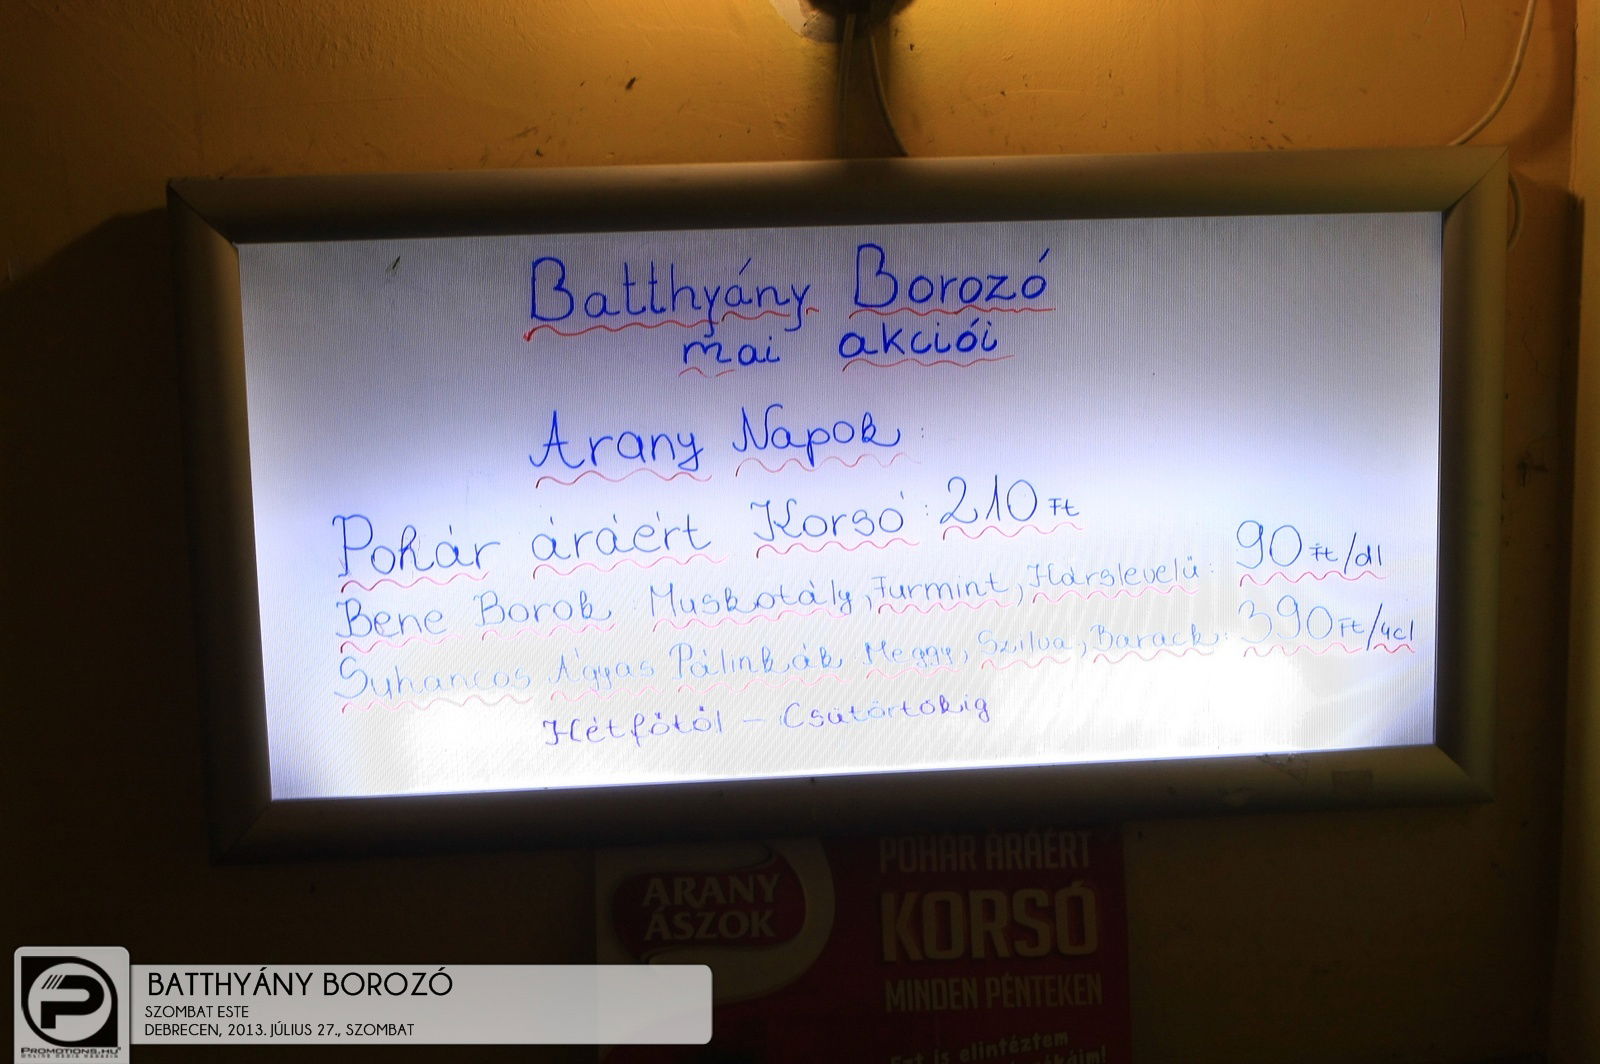 Batthyány Borozó
mai akciói
Arany Napok:
Pohár áráért Korsó: 210 Ft
Bene Borok: Muskotály, Furmint, Hárslevelű: 90 Ft/dl
Suhancos Ágyas Pálinkák Meggy, Szilva, Barack: 390 Ft/4cl
Hétfőtől - Csütörtökig
ARANY
ÁSZOK
POHÁR ÁRÁÉRT
KORSÓ
MINDEN PÉNTEKEN
Ezt is elintéztem
BATTHYÁNY BOROZÓ
SZOMBAT ESTE
DEBRECEN, 2013. JÚLIUS 27., SZOMBAT
PROMOTIONS.HU
ONLINE MEDIA MAGAZIN